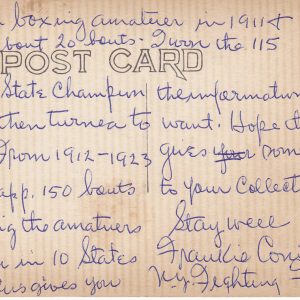 boxing amateur in 1911 &
bout 20 bouts - I won the 115
POST CARD
State Champion
then turned to
From 1912-1923
app. 150 bouts
ing the amatuers
in 10 States
gives you
the information
want. Hope it
gives your
to your Collect
Stay well
Frankie Con
N.Y. Fighting